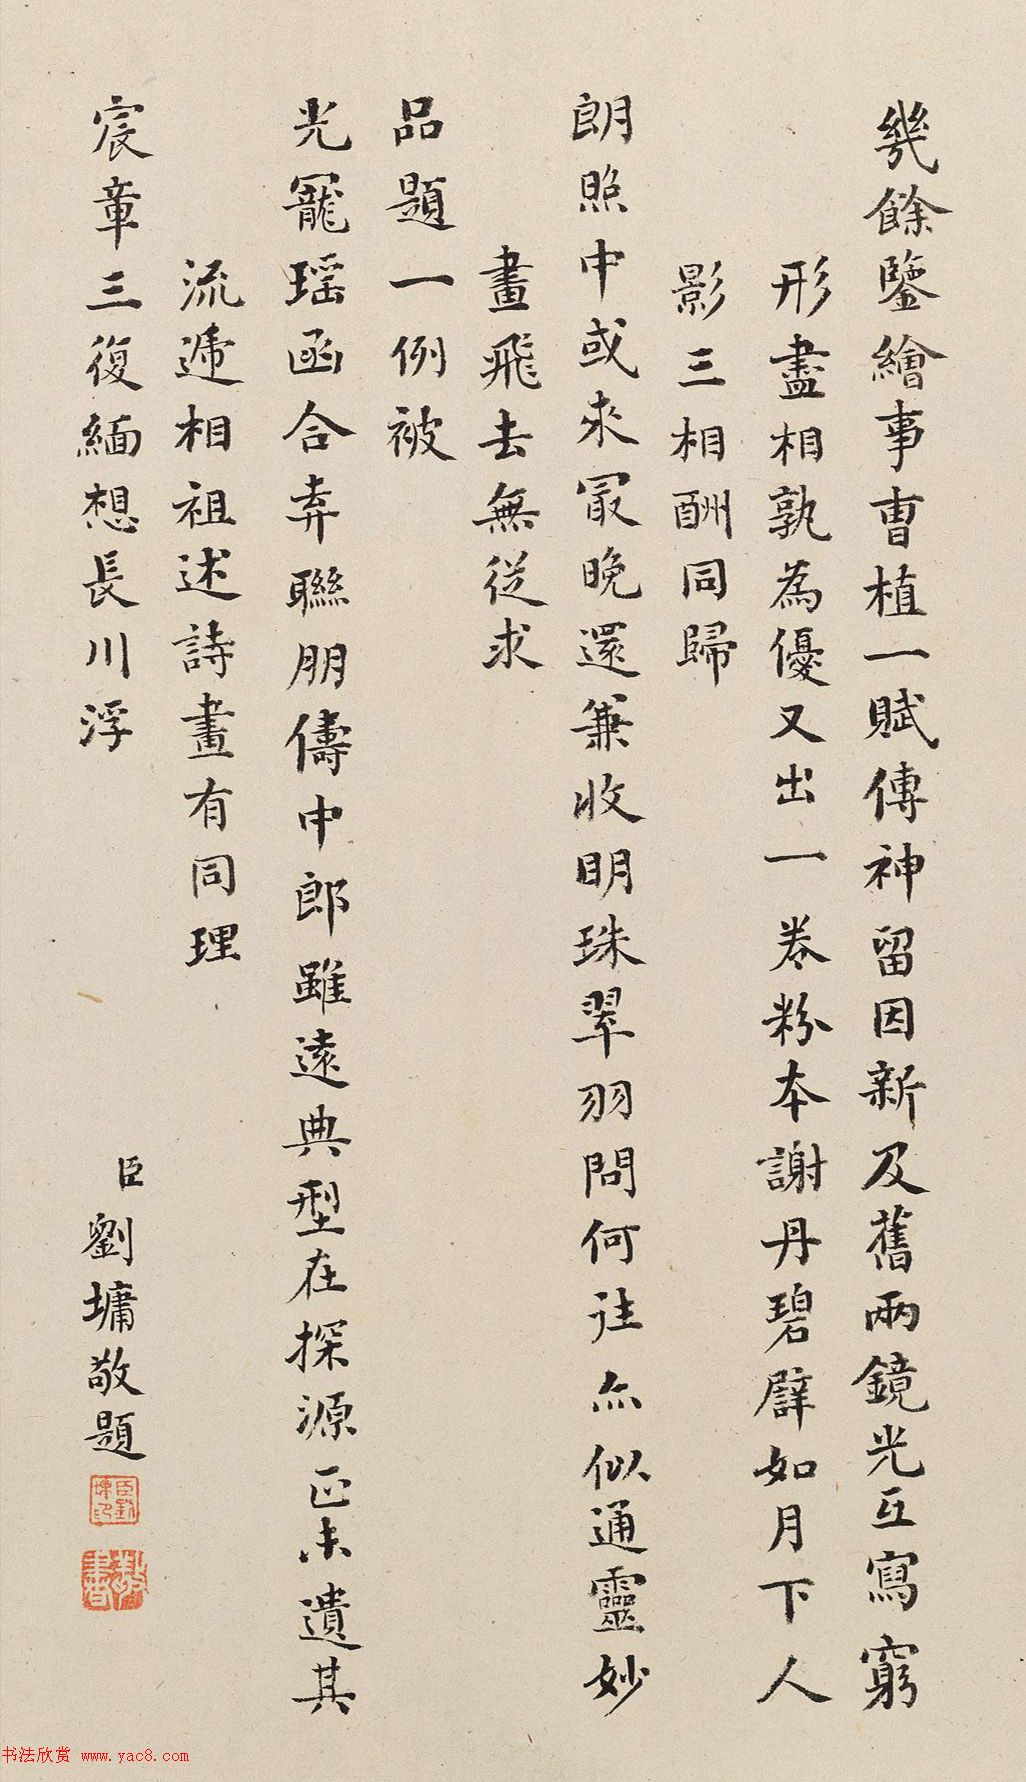 幾餘鑒繪事曺植一賦傳神留因新及舊兩鏡光互寫窮
形盡相孰為優又出一卷粉本謝丹碧譬如月下人
影三相酬同歸
朗照中或來冣晚還兼收明珠翠羽問何往亦似通靈妙
畫飛去無從求
品題一例被
光寵瑶函合弆聯朋儔中郎雖遠典型在探源正未遺其
流遞相祖述詩畫有同理
宸章三復緬想長川浮
臣劉墉敬題
书法欣赏 www.yac8.com